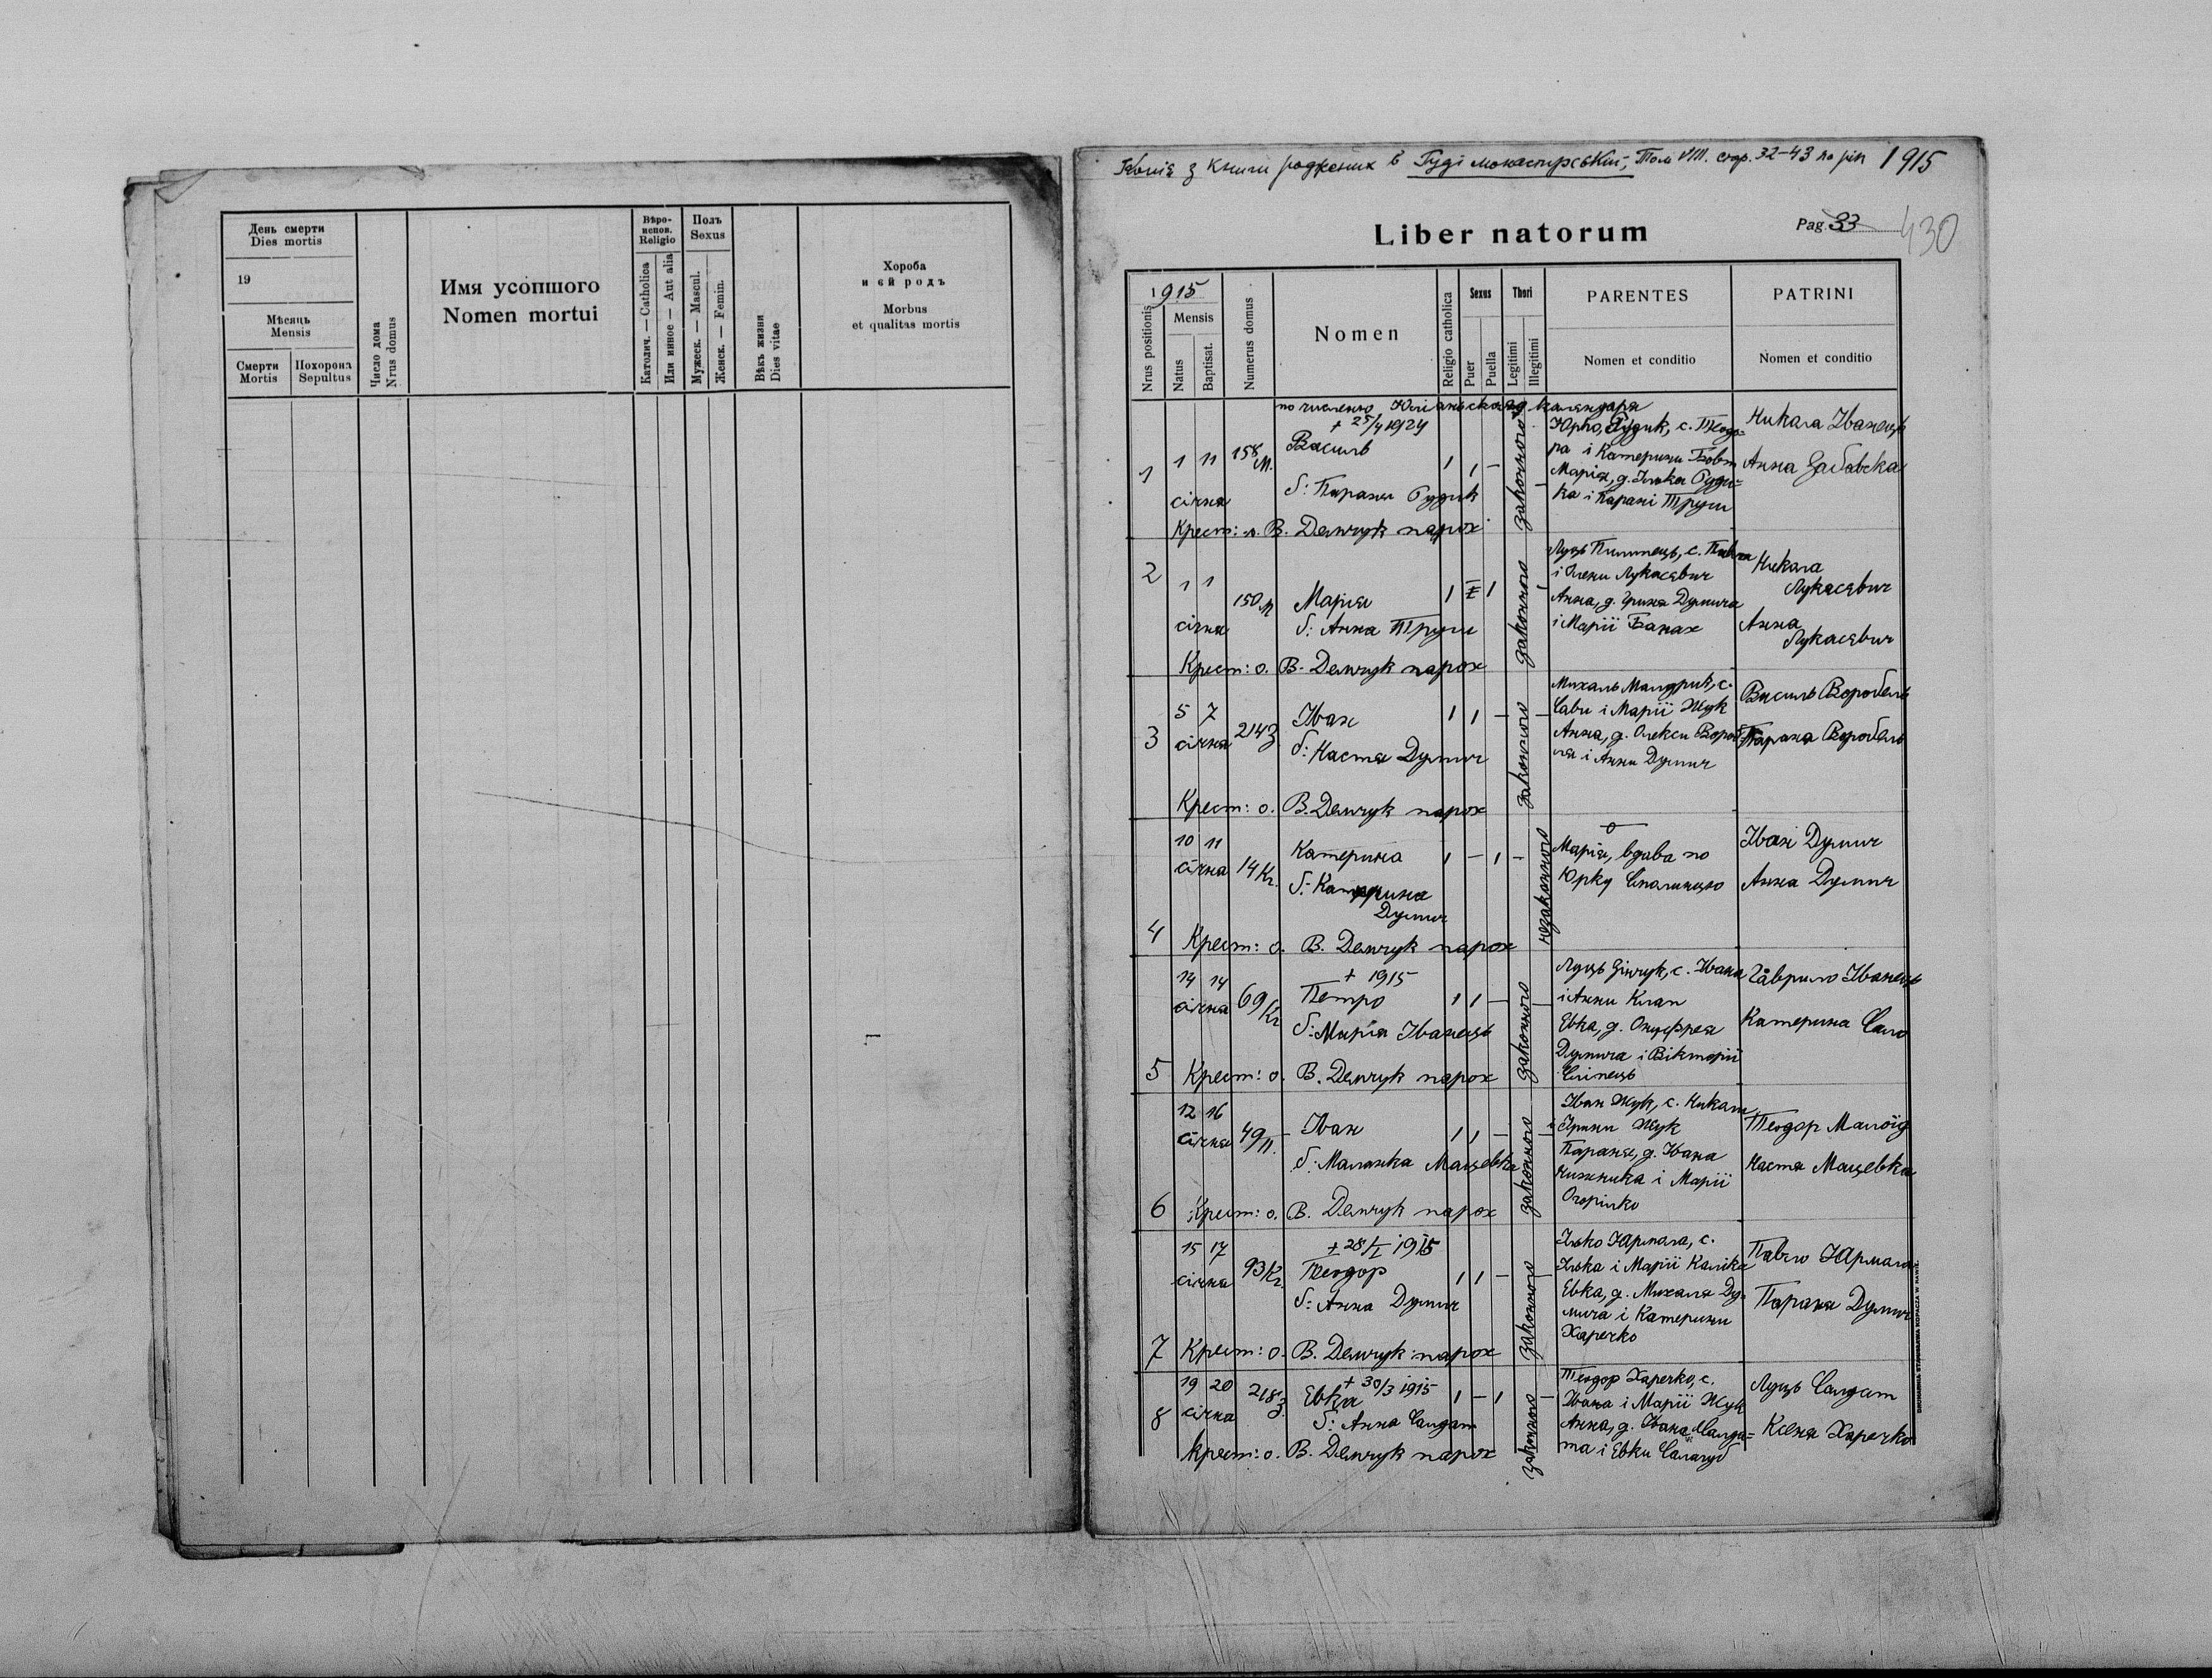 День смерти
Dies mortis
19
Мѣсяць
Mensis
Смерти
Mortis
Похорона
Sepultus
Число дома
Nrus domus
Имя усопшого
Nomen mortui
Вѣро-
испов.
Religio
Католич. — Catholica
Или инное — Aut alia
Полъ
Sexus
Мужеск. — Mascul.
Женск. — Femin.
Вѣкъ жизни
Dies vitae
Хороба
и єй родъ
Morbus
et qualitas mortis
Копія з книги роджених в Гуді монастирській, Том VIII. стор. 32-43 на рік 1915
Liber natorum
Pag. 33
430
1915
Nrus positionis
Mensis
Natus
Baptisat.
Numerus domus
Nomen
Religio catholica
Sexus
Puer
Puella
Thori
Legitimi
Illegitimi
PARENTES
Nomen et conditio
PATRINI
Nomen et conditio
по численю Юліанського календаря
+ 25/4 1924
1
1 11
січня
158 М.
Василь
б: Параня Рудик
1 1 -
законного
Юрко Рудик, с. Теодо-
ра і Катерини
Марія, д. Ілька Руди-
ка і Парані Труш
Никола Іванець
Анна
Крест: о. В. Демчук парох
2
1 1
січня
150 М
Марія
б: Анна Труш
1 1
законного
Луць Пилипець, с. Павла
і Олени Лукасевич
Анна, д. Гриня Думича
і Марії Банах
Никола
Лукасевич
Анна
Лукасевич
Крест: о. В. Демчук парох
3
5 7
січня
214 З
Іван
б: Настя Думич
1 1 -
законного
Михаль Мандрик, с.
Сави і Марії Жук
Анна, д. Олекси Вороб-
ля і Анни Думич
Василь Воробель
Параня Воробель
Крест: о. В. Демчук парох
4
10 11
січня
14 Кг.
Катерина
б: Катерина
Думич
1 - 1 -
незаконного
Марія, вдова по
Юрку
Іван Думич
Анна Думич
Крест: о. В. Демчук парох
5
14 14
січня
69 Кг
+ 1915
Петро
б: Марія Іванець
1 1 -
законного
Луць Гінчук, с. Івана
і Анни Клап
Евка, д. Онуфрея
Думича і Вікторії
Сліпець
Гаврило Іванець
Катерина Сало
Крест: о. В. Демчук парох
6
12 16
січня
49 П.
Іван
б: Маланка Мацевка
1 1 -
законного
Іван Жук, с. Николи
і Ірини Жук
Параня, д. Івана
Нижника і Марії
Огорілко
Теодор
Настя Мацевка
Крест: о. В. Демчук парох
7
15 17
січня
93 Кг.
+ 28/I 1915
Теодор
б: Анна Думич
1 1 -
законного
Ілько Ярмола, с.
Ілька і Марії Каліка
Евка, д. Михаля Ду-
мича і Катерини
Харечко
Павло Ярмола
Параня Думич
Крест: о. В. Демчук парох
8
19 20
січня
218 З.
+ 30/3 1915
Евка
б: Анна Салдат
1 - 1 -
законного
Теодор Харечко, с.
Івана і Марії Жук
Анна, д. Івана Салда-
та і Евки Салагуб
Луць Салдат
Ксеня Харечко
Крест: о. В. Демчук парох
DRUKARNIA STANISŁAWA KOPACZA W RAWIE.